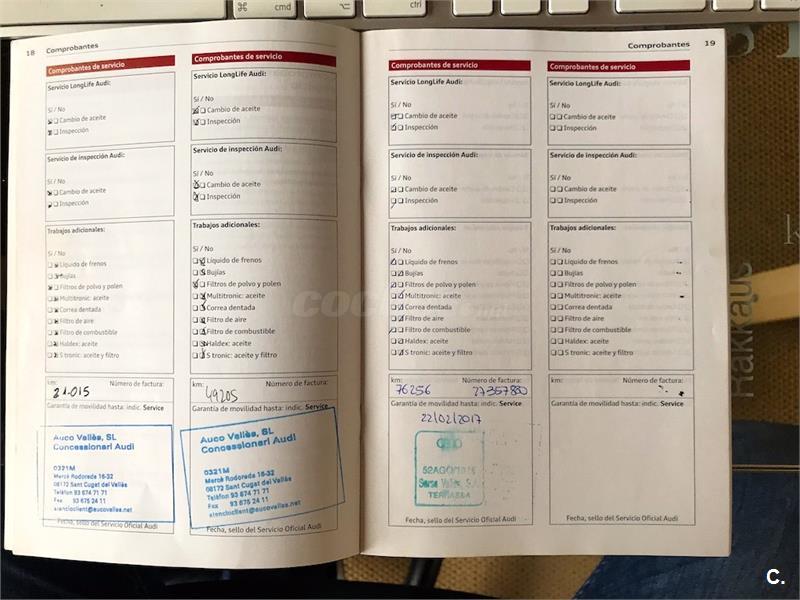 cmd
alt
ctrl
18 Comprobantes
Comprobantes de servicio
Servicio LongLife Audi:
Sí / No
Cambio de aceite
Inspección
Servicio de inspección Audi:
Sí / No
Cambio de aceite
Inspección
Trabajos adicionales:
Sí / No
Líquido de frenos
Bujías
Filtros de polvo y polen
Multitronic: aceite
Correa dentada
Filtro de aire
Filtro de combustible
Haldex: aceite
S tronic: aceite y filtro
km: Número de factura:
21.015
Garantía de movilidad hasta: indic. Service
Auco Vallès, SL
Concessionari Audi
0321M
Mercè Rodoreda 16-32
08172 Sant Cugat del Vallès
Telèfon 93 674 71 71
Fax 93 675 24 11
atencioclient@aucovalles.net
Fecha, sello del Servicio Oficial Audi
Comprobantes de servicio
Servicio LongLife Audi:
Sí / No
Cambio de aceite
Inspección
Servicio de inspección Audi:
Sí / No
Cambio de aceite
Inspección
Trabajos adicionales:
Sí / No
Líquido de frenos
Bujías
Filtros de polvo y polen
Multitronic: aceite
Correa dentada
Filtro de aire
Filtro de combustible
Haldex: aceite
S tronic: aceite y filtro
km: Número de factura:
49205
Garantía de movilidad hasta: indic. Service
Auco Vallès, SL
Concessionari Audi
0321M
Mercè Rodoreda 16-32
08172 Sant Cugat del Vallès
Telèfon 93 674 71 71
Fax 93 675 24 11
atencioclient@aucovalles.net
Fecha, sello del Servicio Oficial Audi
Comprobantes 19
Comprobantes de servicio
Servicio LongLife Audi:
Sí / No
Cambio de aceite
Inspección
Servicio de inspección Audi:
Sí / No
Cambio de aceite
Inspección
Trabajos adicionales:
Sí / No
Líquido de frenos
Bujías
Filtros de polvo y polen
Multitronic: aceite
Correa dentada
Filtro de aire
Filtro de combustible
Haldex: aceite
S tronic: aceite y filtro
km: Número de factura:
76256 27357880
Garantía de movilidad hasta: indic. Service
22/02/2017
Sarsa Vallès, S.A.
TERRASSA
Fecha, sello del Servicio Oficial Audi
Comprobantes de servicio
Servicio LongLife Audi:
Sí / No
Cambio de aceite
Inspección
Servicio de inspección Audi:
Sí / No
Cambio de aceite
Inspección
Trabajos adicionales:
Sí / No
Líquido de frenos
Bujías
Filtros de polvo y polen
Multitronic: aceite
Correa dentada
Filtro de aire
Filtro de combustible
Haldex: aceite
S tronic: aceite y filtro
km: Número de factura:
Garantía de movilidad hasta: indic. Service
Fecha, sello del Servicio Oficial Audi
C.